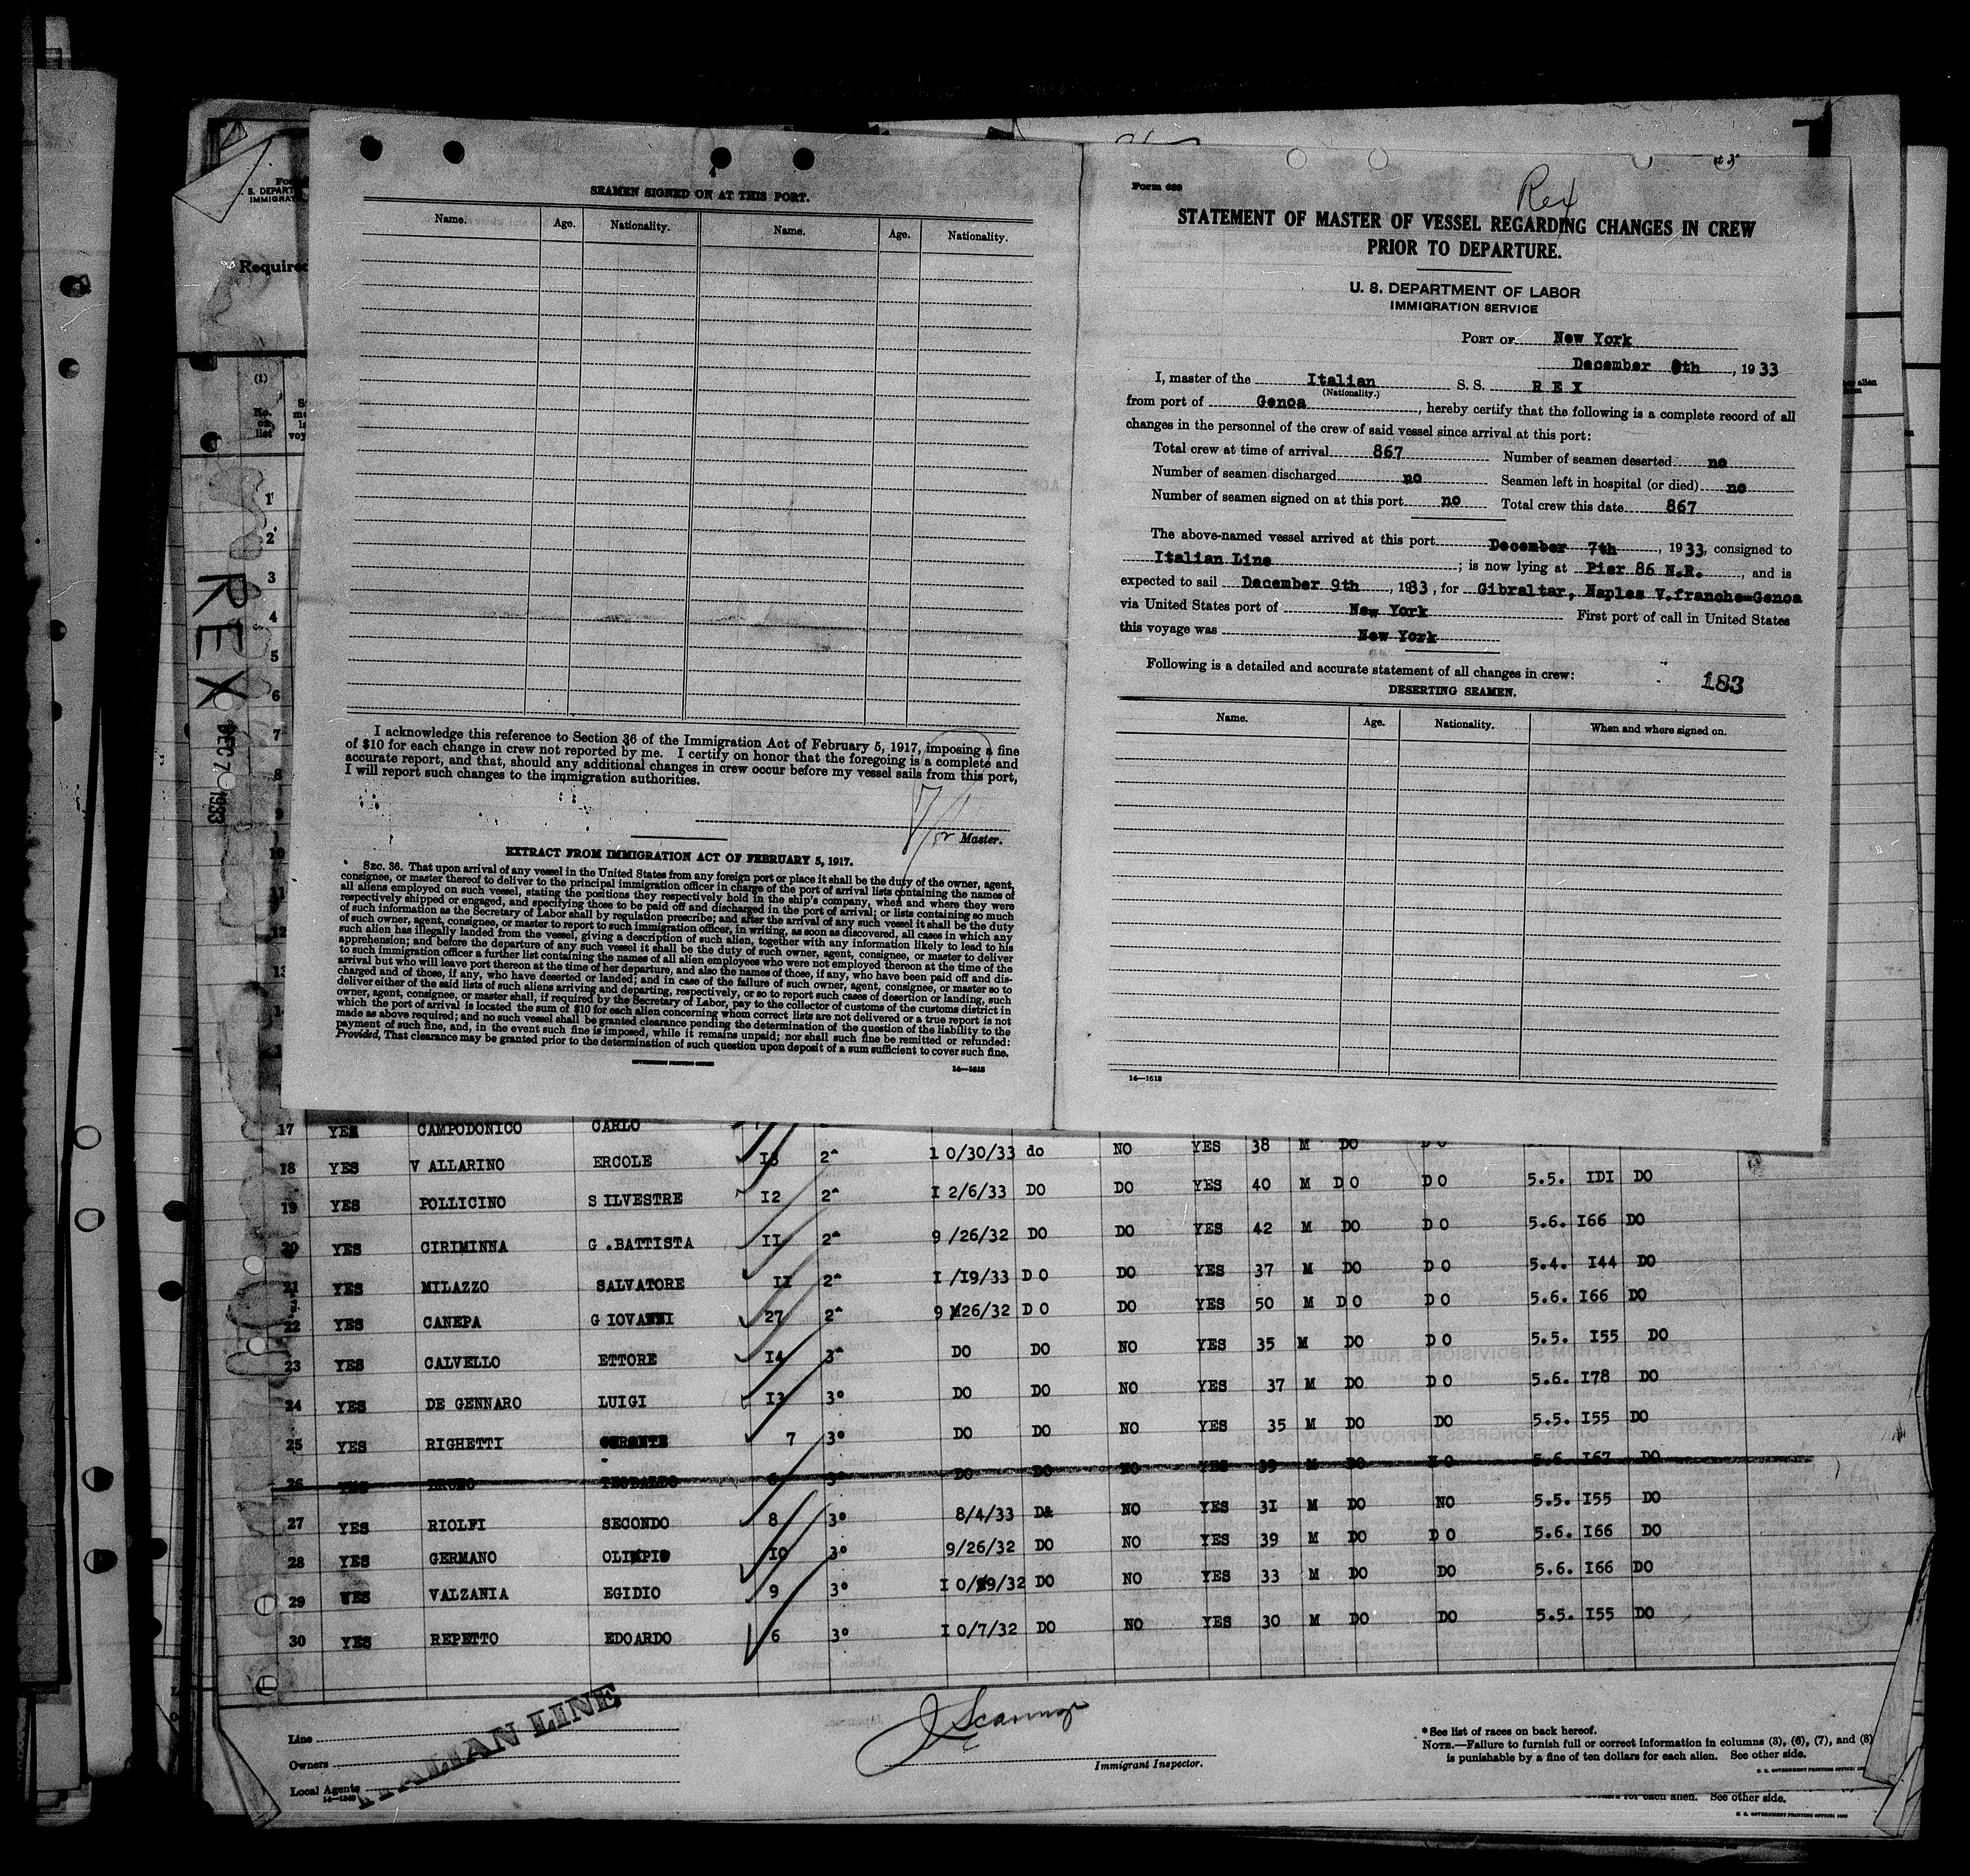 SEAMEN SIGNED ON AT THIS PORT.
Name. Age. Nationality. Name. Age. Nationality.
I acknowledge this reference to Section 36 of the Immigration Act of February 5, 1917, imposing a fine
of $10 for each change in crew not reported by me. I certify on honor that the foregoing is a complete and
accurate report, and that, should any additional changes in crew occur before my vessel sails from this port,
I will report such changes to the immigration authorities.
Master.
EXTRACT FROM IMMIGRATION ACT OF FEBRUARY 5, 1917.
SEC. 36. That upon arrival of any vessel in the United States from any foreign port or place it shall be the duty of the owner, agent,
consignee, or master thereof to deliver to the principal immigration officer in charge of the port of arrival lists containing the names of
all aliens employed on such vessel, stating the positions they respectively hold in the ship's company, when and where they were
respectively shipped or engaged, and specifying those to be paid off and discharged in the port of arrival; or lists containing so much
of such information as the Secretary of Labor shall by regulation prescribe; and after the arrival of any such vessel it shall be the duty
of such owner, agent, consignee, or master to report to such immigration officer, in writing, as soon as discovered, all cases in which any
such alien has illegally landed from the vessel, giving a description of such alien, together with any information likely to lead to his
apprehension; and before the departure of any such vessel it shall be the duty of such owner, agent, consignee, or master to deliver
to such immigration officer a further list containing the names of all alien employees who were not employed thereon at the time of the
arrival but who will leave port thereon at the time of her departure, and also the names of those, if any, who have been paid off and dis-
charged and of those, if any, who have deserted or landed; and in case of the failure of such owner, agent, consignee, or master so to
deliver either of the said lists of such aliens arriving and departing, respectively, or so to report such cases of desertion or landing, such
owner, agent, consignee, or master shall, if required by the Secretary of Labor, pay to the collector of customs of the customs district in
which the port of arrival is located the sum of $10 for each alien concerning whom correct lists are not delivered or a true report is not
made as above required; and no such vessel shall be granted clearance pending the determination of the question of the liability to the
payment of such fine, and, in the event such fine is imposed, while it remains unpaid; nor shall such fine be remitted or refunded:
Provided, That clearance may be granted prior to the determination of such question upon deposit of a sum sufficient to cover such fine.
GOVERNMENT PRINTING OFFICE
14—1618
Form 689
Rex
STATEMENT OF MASTER OF VESSEL REGARDING CHANGES IN CREW
PRIOR TO DEPARTURE.
U. S. DEPARTMENT OF LABOR
IMMIGRATION SERVICE
PORT OF New York
December 9th, 1933
I, master of the Italian S. S. R E X
(Nationality.)
from port of Genoa, hereby certify that the following is a complete record of all
changes in the personnel of the crew of said vessel since arrival at this port:
Total crew at time of arrival 867 Number of seamen deserted no
Number of seamen discharged no Seamen left in hospital (or died) no
Number of seamen signed on at this port no Total crew this date 867
The above-named vessel arrived at this port December 7th, 1933, consigned to
Italian Line; is now lying at Pier 86 N.R., and is
expected to sail December 9th, 1933, for Gibraltar, Naples V.franche-Genoa
via United States port of New York First port of call in United States
this voyage was New York
Following is a detailed and accurate statement of all changes in crew:
183
DESERTING SEAMEN.
Name. Age. Nationality. When and where signed on.
14—1618
Required
(1)
No. on list
REX
DEC 7 1933
1
2
3
4
5
6
7
8
9
10
11
12
13
17 YES CAMPODONICO CARLO
18 YES V ALLARINO ERCOLE I3 2^ 1 0/30/33 do NO YES 38 M DO D O
19 YES POLLICINO S ILVESTRE I2 2^ I 2/6/33 DO DO YES 40 M D O D O 5.5. IDI DO
20 YES CIRIMINNA G .BATTISTA II 2^ 9 /26/32 DO DO YES 42 M DO D O 5.6. I66 DO
21 YES MILAZZO SALVATORE II 2^ I /I9/33 D O DO YES 37 M DO D O 5.4. I44 DO
22 YES CANEPA G IOVANNI 27 2^ 9 /26/32 D O DO YES 50 M D O D O 5.6. I66 DO
23 YES CALVELLO ETTORE I4 3^ DO DO NO YES 35 M DO D O 5.5. I55 DO
24 YES DE GENNARO LUIGI I3 3° DO DO NO YES 37 M DO D O 5.6. I78 DO
25 YES RIGHETTI 7 3° DO DO NO YES 35 M DO DO 5.5. I55 DO
26 YES BRUNO TEOBALDO 6 3° DO DO NO YES 39 M DO 5.6. I67 DO
27 YES RIOLFI SECONDO 8 3° 8/4/33 NO YES 3I M DO NO 5.5. I55 DO
28 YES GERMANO OLIMPIO I0 3° 9/26/32 DO NO YES 39 M DO D O 5.6. I66 DO
29 YES VALZANIA EGIDIO 9 3° DO NO YES 33 M DO DO 5.6. I66 DO
30 YES REPETTO EDOARDO 6 3° I 0/7/32 DO NO YES 30 M DO DO 5.5. I55 DO
Line
Owners
Local Agents
14—1240
ITALIAN LINE
Immigrant Inspector.
*See list of races on back hereof.
NOTE.—Failure to furnish full or correct information in columns (3), (6), (7), and (8)
is punishable by a fine of ten dollars for each alien. See other side.
for each alien. See other side.